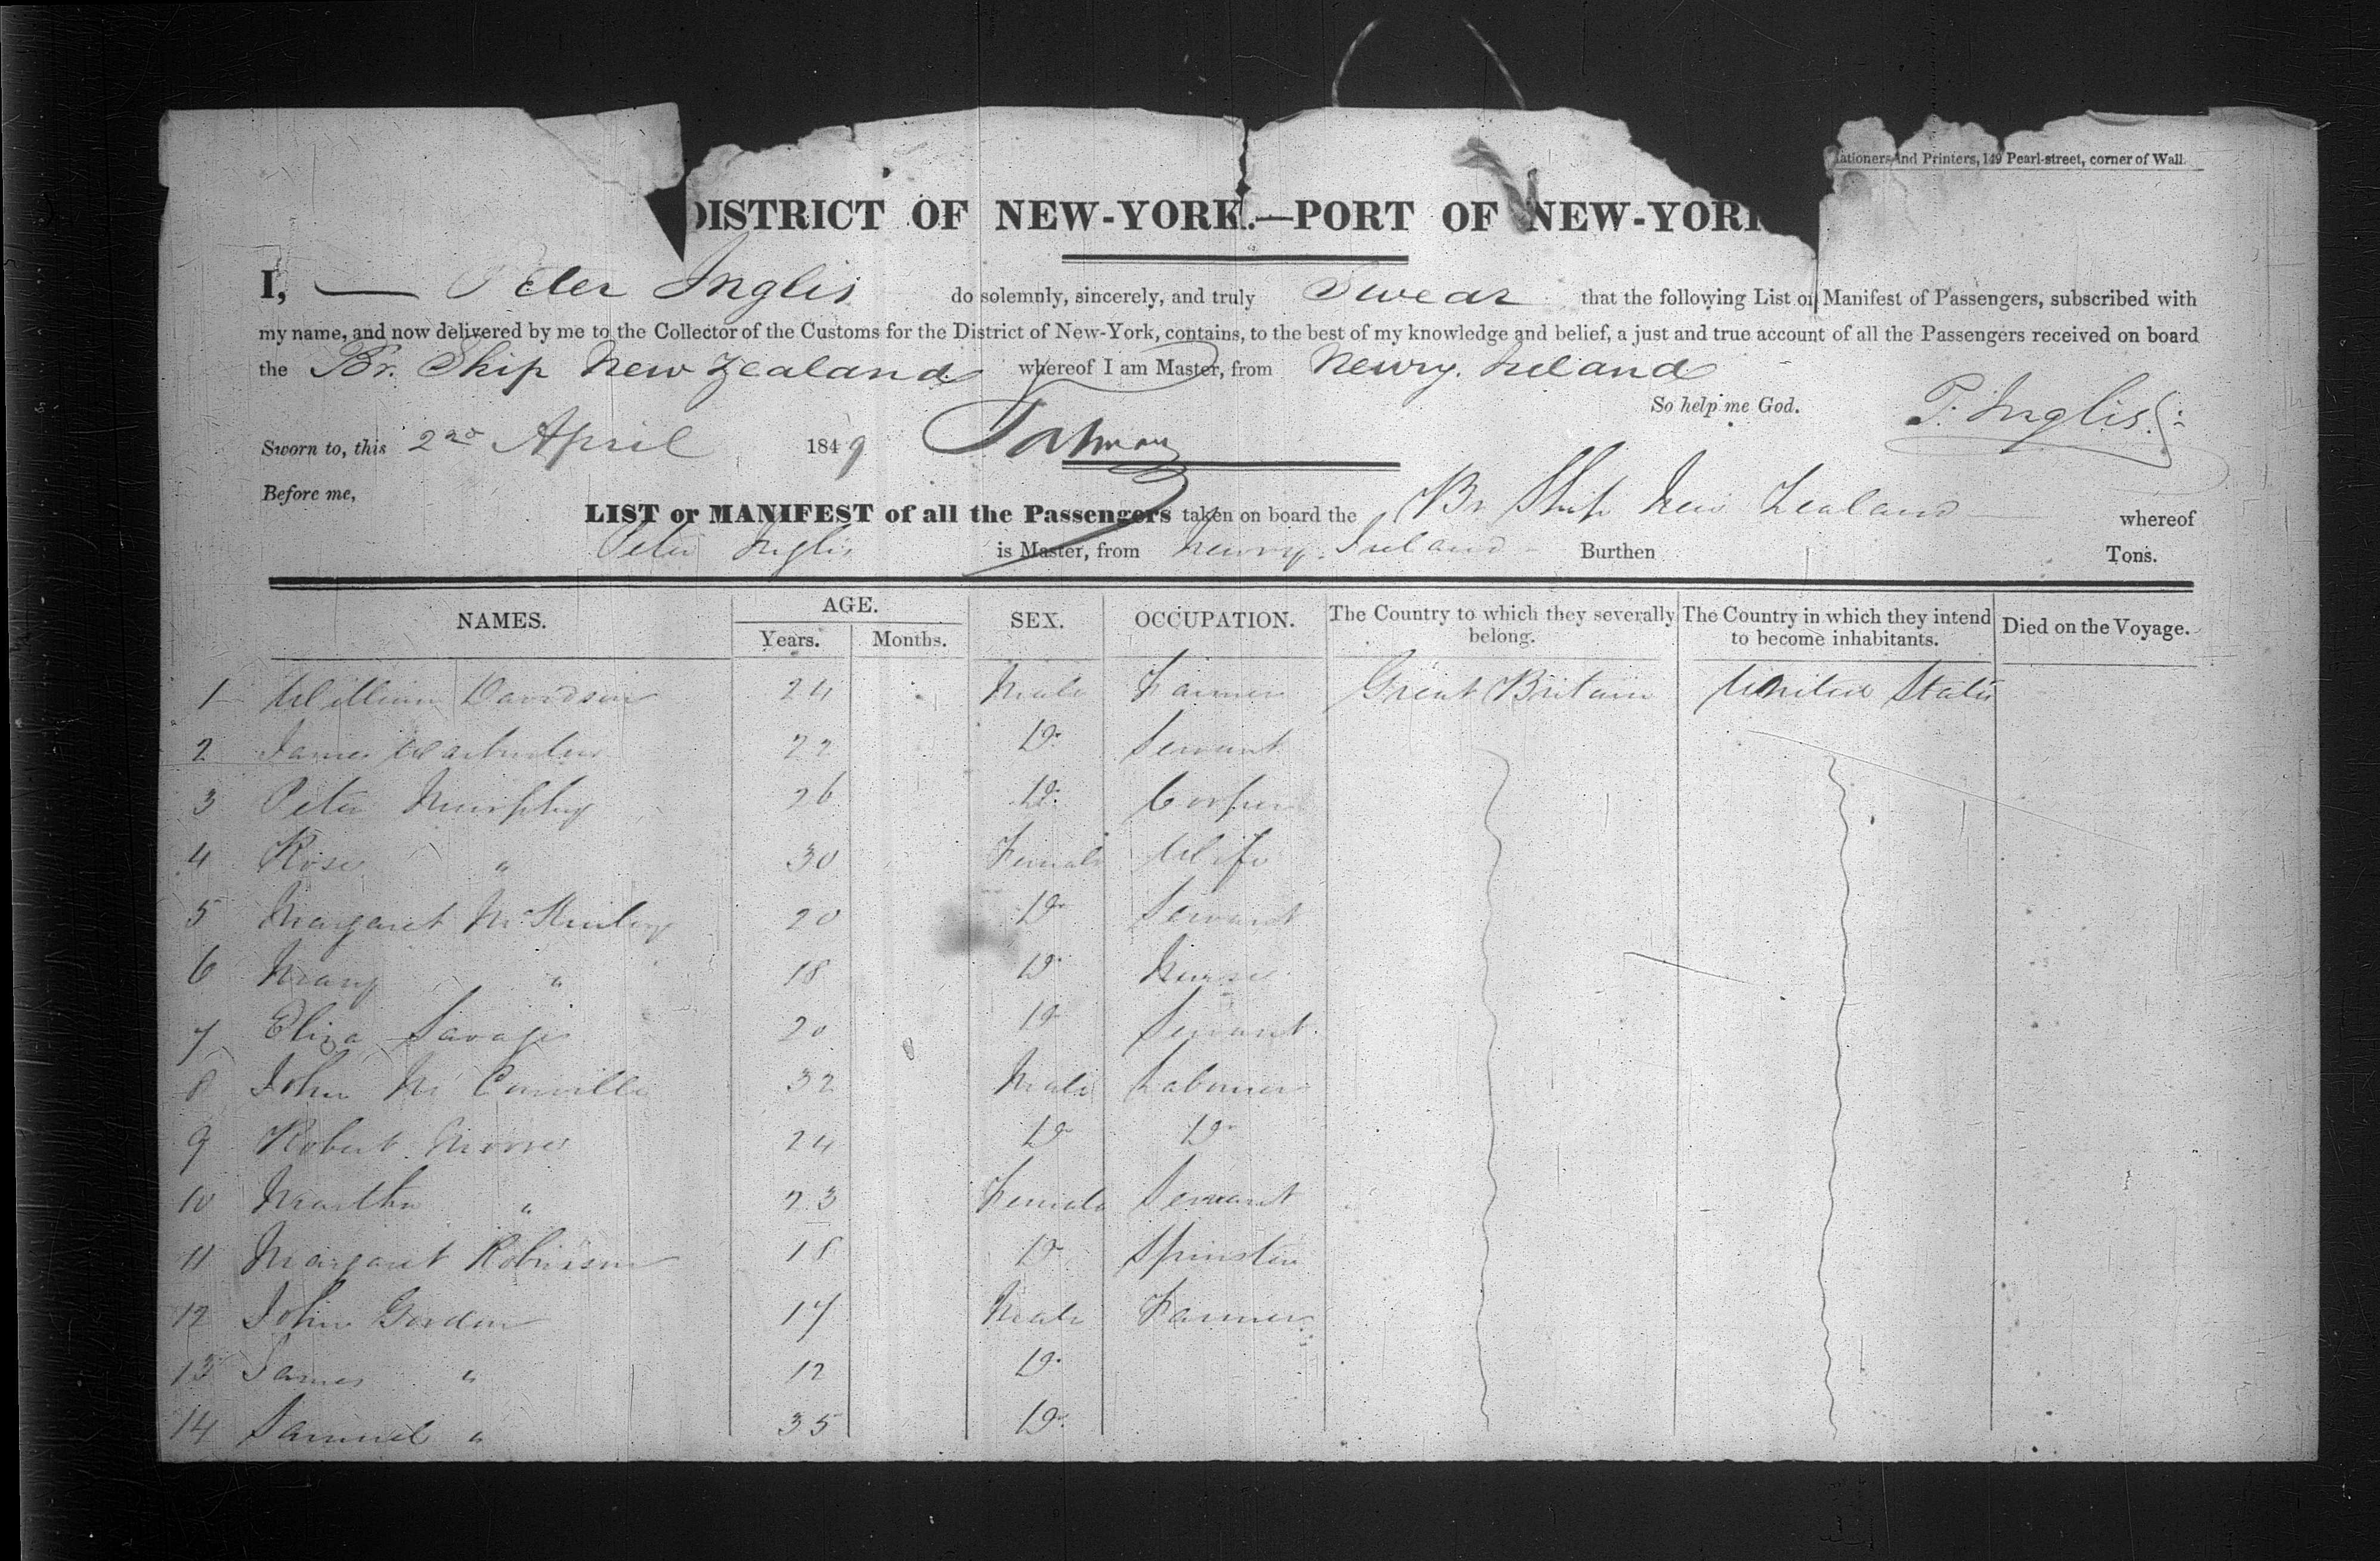 tationers and Printers, 149 Pearl-street, corner of Wall
DISTRICT OF NEW-YORK.—PORT OF NEW-YORK
I, Peter Inglis do solemnly, sincerely, and truly Swear that the following List or Manifest of Passengers, subscribed with
my name, and now delivered by me to the Collector of the Customs for the District of New-York, contains, to the best of my knowledge and belief, a just and true account of all the Passengers received on board
the Br. Ship New Zealand whereof I am Master, from Newry. Ireland
So help me God. P. Inglis
Sworn to, this 2nd April 1849
Before me,
LIST or MANIFEST of all the Passengers taken on board the Br Ship New Zealand whereof
Peter Inglis is Master, from Newry. Ireland Burthen Tons.
NAMES. AGE. Years. Months. SEX. OCCUPATION. The Country to which they severally belong. The Country in which they intend to become inhabitants. Died on the Voyage.
1 William Davidson 24 Male Farmer Great Britain United States
2 James 22 Do. Servant
3 Peter Murphy 26 Do. Cooper
4 Rose " 30 Female Wife
5 Margaret 20 Do Servant
6 Mary " 18 Do Nurse
7 Eliza Savage 20 Do Servant
8 John McConville 32 Male Labourer
9 Robert Moore 24 Do Do
10 Martha " 23 Female Servant
11 Margaret Robinson 18 Do Spinster
12 John Gordon 17 Male Farmer
13 James " 12 Do.
14 Samuel " 35 Do.